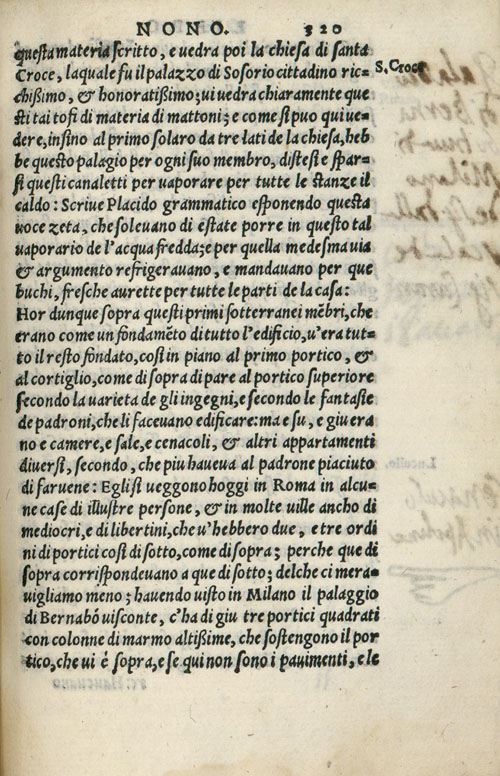 NONO. 320
questa materia scritto, e uedra poi la chiesa di santa
Croce, laquale fu il palazzo di Sosorio cittadino ric=
S. Croce
chißimo, & honoratißimo; ui uedra chiaramente que
sti tai tofi di materia di mattoni; e come si puo qui ue=
dere, insino al primo solaro da tre lati de la chiesa, heb
be questo palagio per ogni suo membro, distesi e spar=
si questi canaletti per uaporare per tutte le stanze il
caldo: Scriue Placido grammatico esponendo questa
uoce zeta, che soleuano di estate porre in questo tal
uaporario de l'acqua fredda; e per quella medesma uia
& argumento refrigerauano, e mandauano per que
buchi, fresche aurette per tutte le parti de la casa:
Hor dunque sopra questi primi sotterranei mẽbri, che
erano come un fondamẽto di tutto l'edificio, u'era tut=
to il resto fondato, cosi in piano al primo portico, &
al cortiglio, come di sopra di pare al portico superiore
secondo la uarieta de gli ingegni, e secondo le fantasie
de padroni, che li faceuano edificare: ma e su, e giu era
no e camere, e sale, e cenacoli, & altri appartamenti
diuersi, secondo, che piu haueua al padrone piaciuto
di faruene: Egli si ueggono hoggi in Roma in alcu=
ne case di illustre persone, & in molte uille ancho di
mediocri, e di libertini, che u'hebbero due, e tre ordi
ni di portici cosi di sotto, come di sopra; perche que di
sopra corrispondeuano a que di sotto; delche ci mera=
uigliamo meno; hauendo uisto in Milano il palaggio
di Bernabó uisconte, c'ha di giu tre portici quadrati
con colonne di marmo altißime, che sostengono il por
tico, che ui é sopra, e se qui non sono i pauimenti, e le